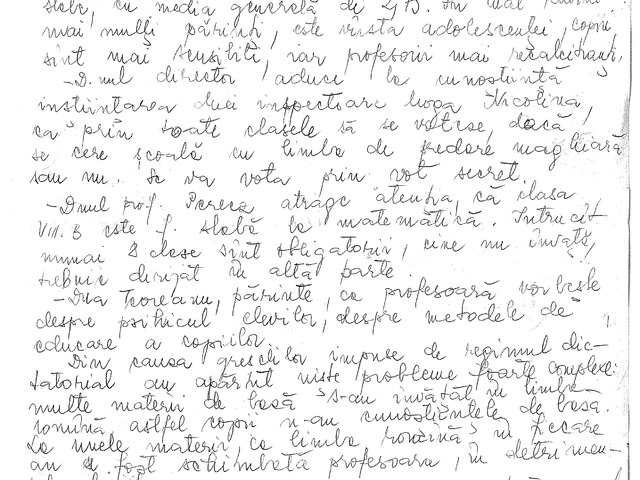 slabă, cu media generală de 4,73. În
mai mulți părinți, este vîrsta adolescenței, copiii
sînt mai sensibili, iar profesorii mai recalcitranți.
-D.nul director aduce la cunoștiință
înștiințarea dnei inspectoare Nicolina,
ca prin toate clasele să se voteze, dacă
se cere școală cu limba de predare maghiară
sau nu. Se va vota prin vot secret.
-Dnul prof. Perecz atrage atenția, că clasa
VIII. B este f. slabă la matematică. Întrucît
numai 8 clase sînt obligatorii, cine nu învață,
trebuie dirijat în altă parte.
-Dna Teoreanu, părinte, ca profesoară vorbește
despre psihicul elevilor, despre metodele de
educare a copiilor.
Din cauza greșelilor impuse de regimul dic-
tatorial au apărut niște probleme foarte complexe:
multe materii de bază s-au învățat în limba
română astfel copii n-au cunoștiințele de bază.
La unele materii, ca limba română în fiecare
an a fost schimbată profesoara, în detrimen-